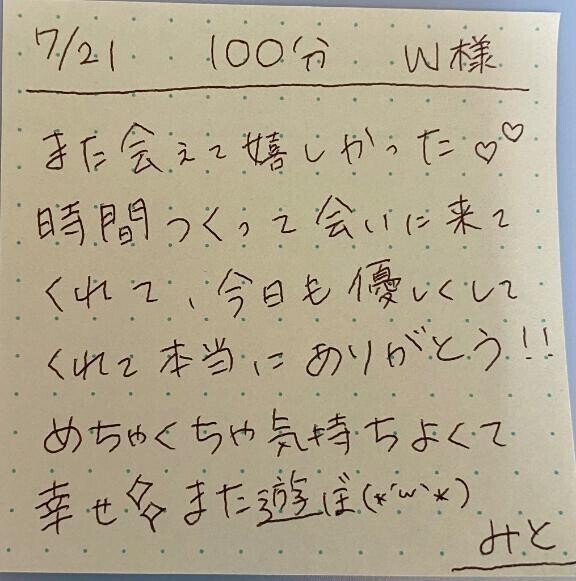 7/21 100分 W様
また会えて嬉しかった♡♡
時間つくって会いに来て
くれて、今日も優しくして
くれて本当にありがとう!!
めちゃくちゃ気持ちよくて
幸せ✧✧また遊ぼ(*´ω`*)
みと